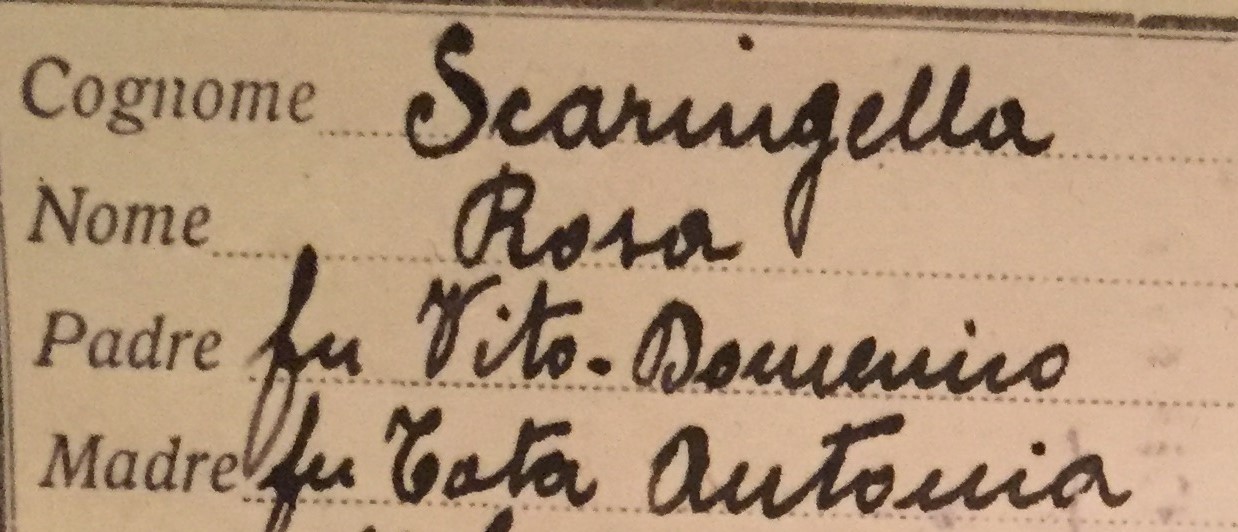 Cognome Scaringella
Nome Rosa
Padre fu Vito-Domenico
Madre fu Tota Antonia